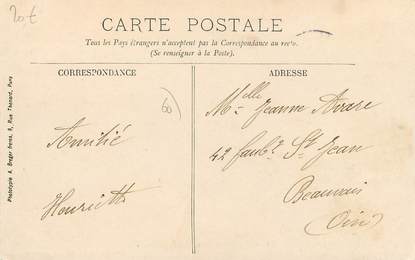 20 €
CARTE POSTALE
Tous les Pays étrangers n'acceptent pas la Correspondance au recto.
(Se renseigner à la Poste).
CORRESPONDANCE
60
Amitié
Henriette
Phototypie A. Breger frères, 9, Rue Thénard, Paris
ADRESSE
Melle Jeanne
42 faubg St Jean
Beauvais
(Oise)